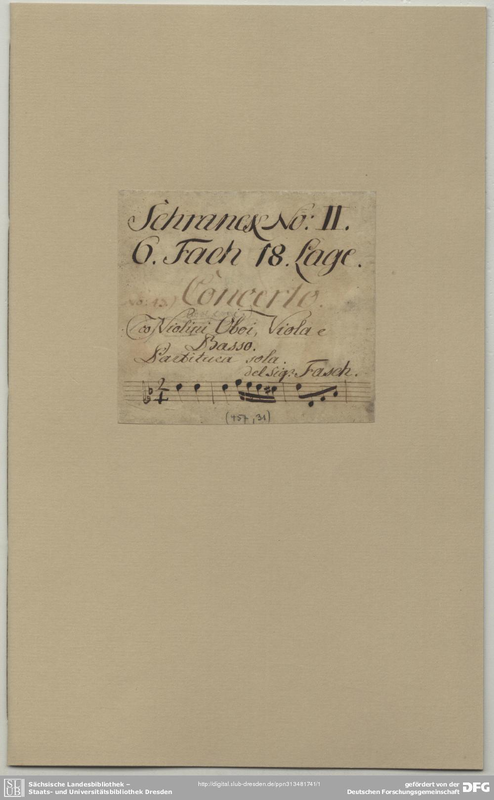 Schranck No: II.
6. Fach 18. Lage.
Concerto.
Co Violini, Oboi, Viola e
Basso.
Partitura sola.
del Sigr. Fasch.
(457, 31)
Sächsische Landesbibliothek –
Staats- und Universitätsbibliothek Dresden
http://digital.slub-dresden.de/ppn313481741/1
gefördert von der
Deutschen Forschungsgemeinschaft
DFG